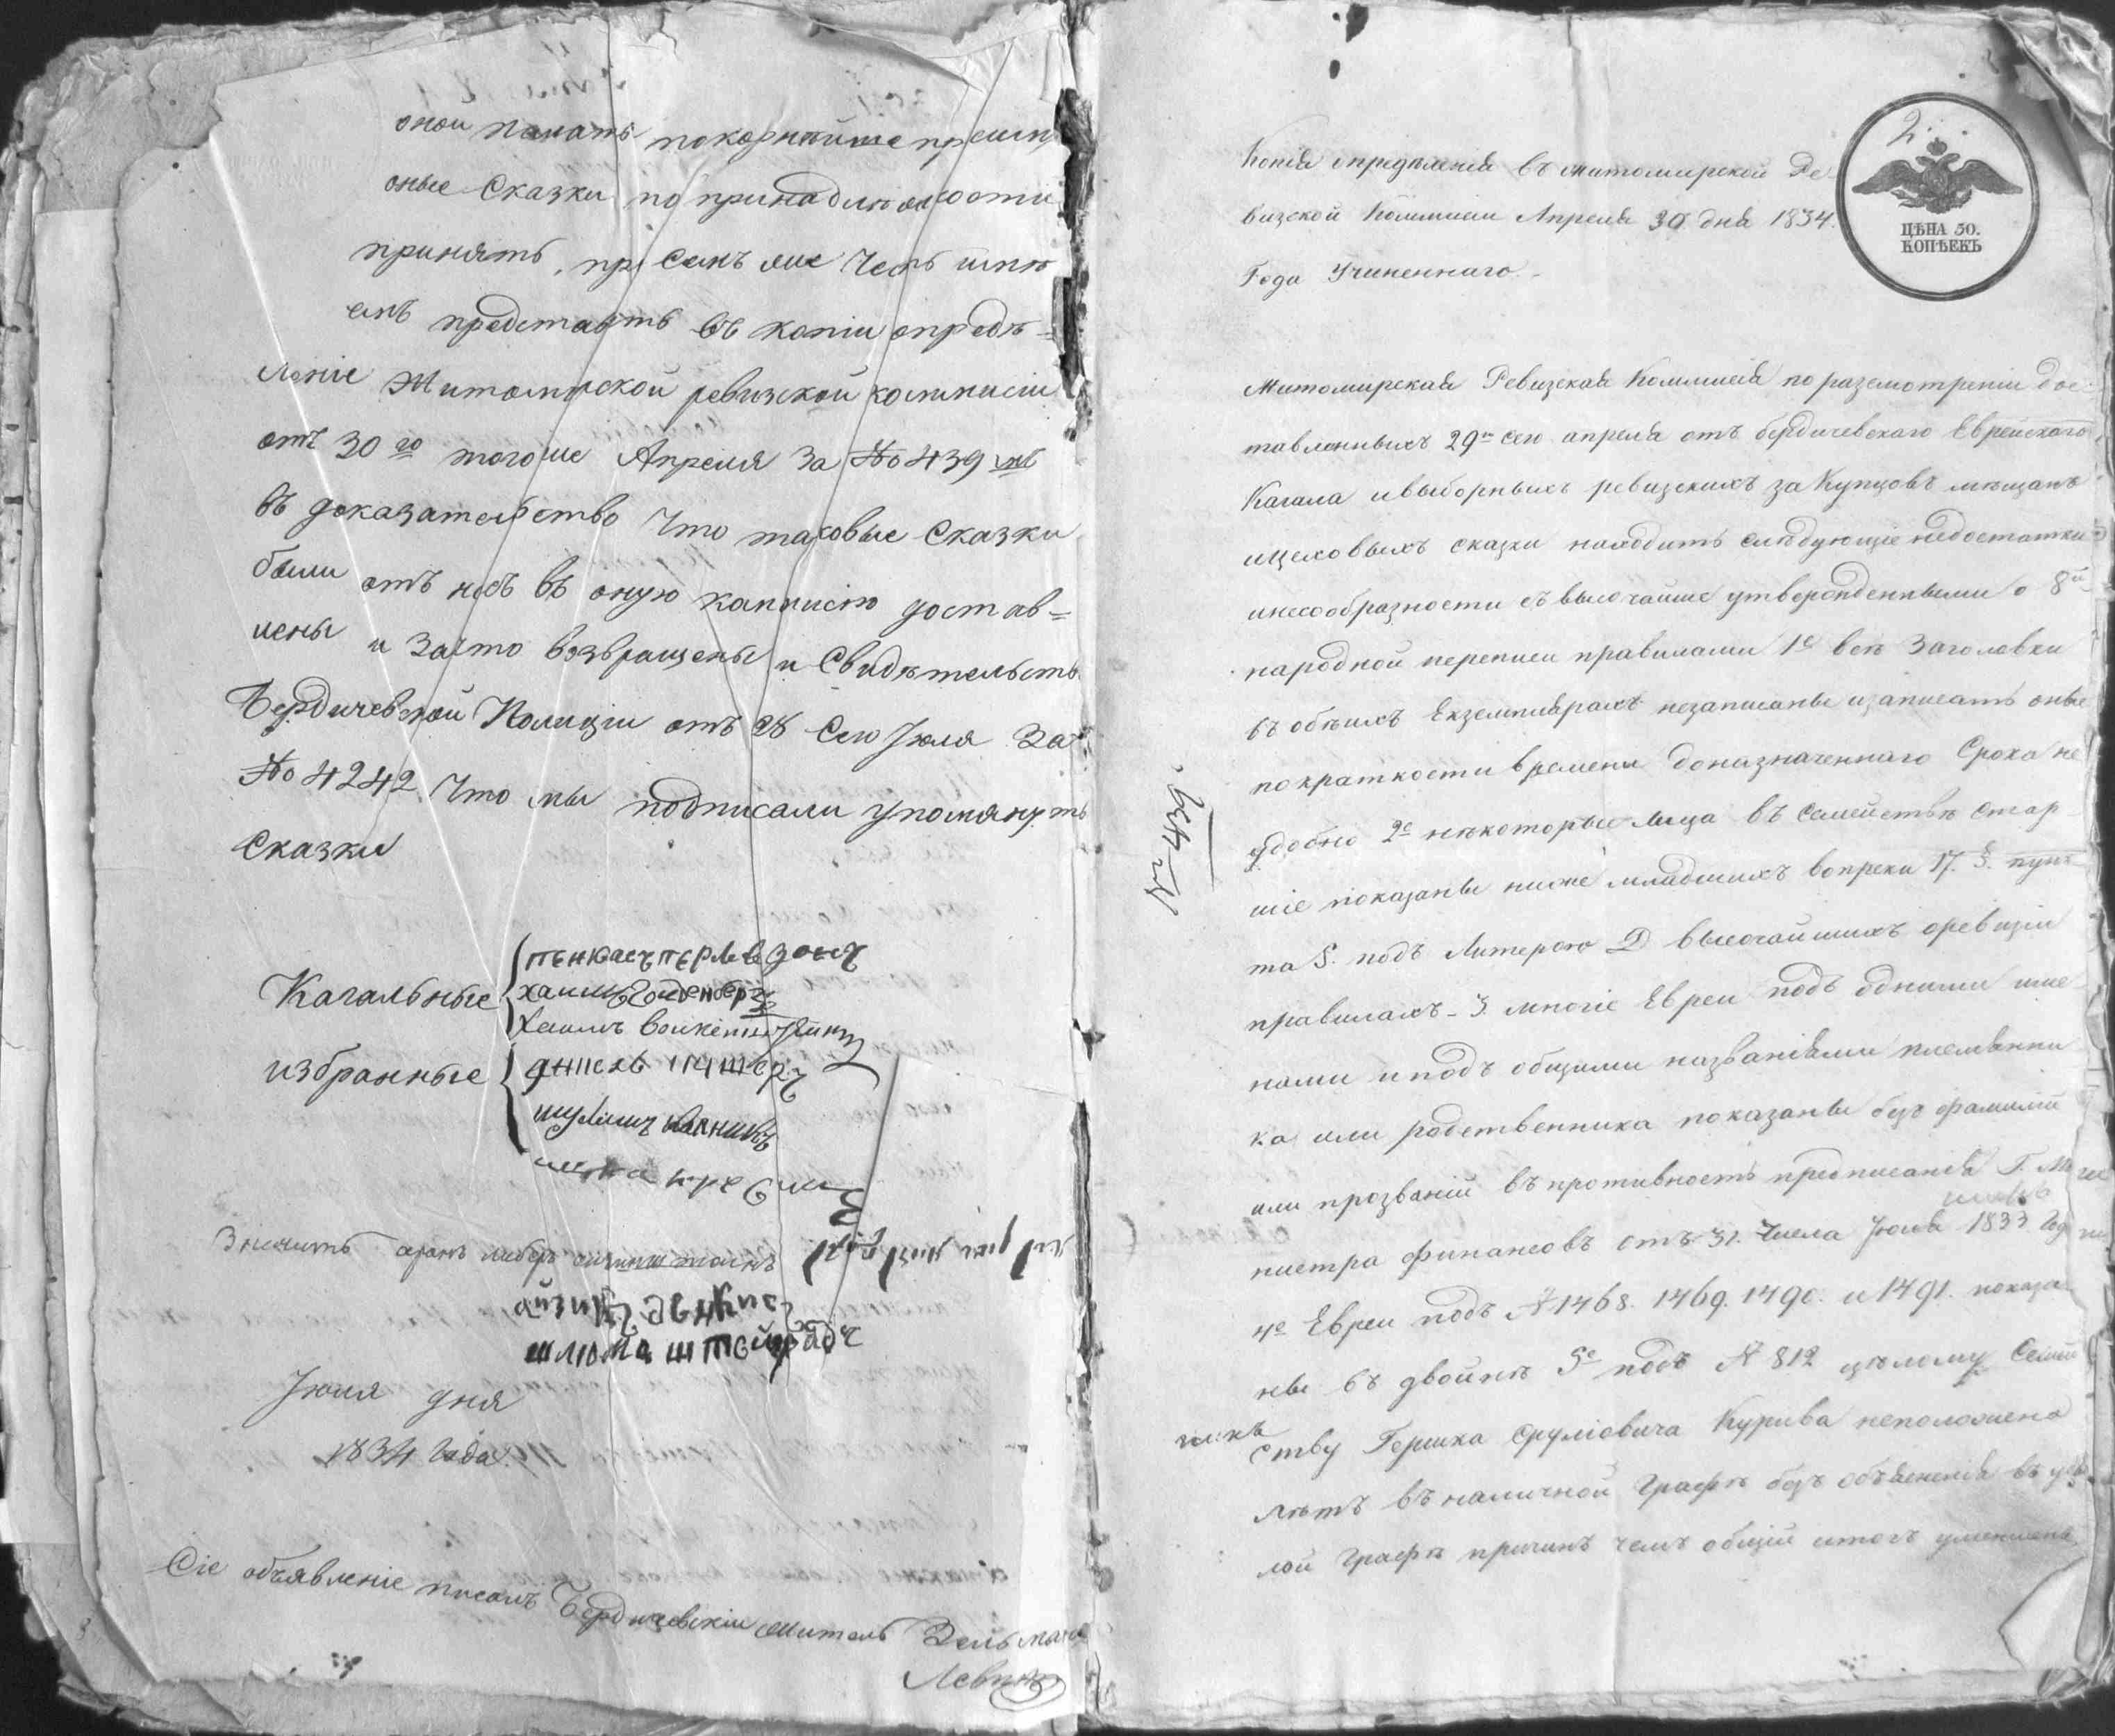 оной палатъ покорнейше просимъ
оные Сказки по принадлежности
принять, при семъ же Честь имѣ
емъ представить въ копіи опредѣ-
леніе Житомирской ревизской коммисіи
отъ 30 го тогоже Апреля За № 439 мъ
въ доказательство Что таковые Сказки
были отъ насъ въ оную каммисію достав=
лены и возвращены и Свидѣтельств
Бердичевской Полиціи отъ 28 Сего Июля За
№ 4242 Что мы подписали упомянуты
Сказки
Кагальные
Хаимъ
избранные
шулимъ
айзикъ
шлюма штейн
Июля дня
1834 Года.
Сіе объявленіе писалъ Бердичевскій житель Зельманъ
Левин
2
ЦѢНА 50.
КОПѢЕКЪ
Копія опредѣленія въ житомирской Ре
визской Коммисіи Апреля 30 дня 1834.
Года Учиненнаго.
Житомирская Ревизская Коммисія по разсмотреніи дос-
тавленныхъ 29го сего апреля отъ бердичевскаго Еврейскаго
Кагала и выборныхъ ревизскихъ за Купцовъ мѣщанъ
ицеховыхъ сказки находитъ слѣдующіе недостатки
инесообразности съ высочайше утвержденными о 8й
народной переписи правилами 1е всѣ Заголовки
въ обѣихъ Екземплярахъ незаписаны изаписать оные
по краткости времени доназначеннаго Срока не
удобно 2е нѣкоторые лица въ Семействѣ стар
№ 439.
шіе показаны ниже младшихъ вопреки 17. §. пунк
та 5. подъ Литерою D высочайшихъ оревизіи
правилахъ - 3. многіе Евреи подъ одними име
нами и подъ общими названіями племянни
ка или родственника показаны безъ фамилій
или прозваній въ противность предписанія Г. Ми
нистра финансовъ отъ 31. Числа Июля 1833 Год
4е Евреи подъ № 1468. 1469. 1490. и 1491. показа
ны въ двойнѣ 5е подъ № 812 цѣлому Семей
ству Гершка Сруліовича Курива неположено
лѣтъ въ наличной Графѣ безъ объясненія въ
лой Графѣ причинъ чемъ общій итогъ уменшенъ